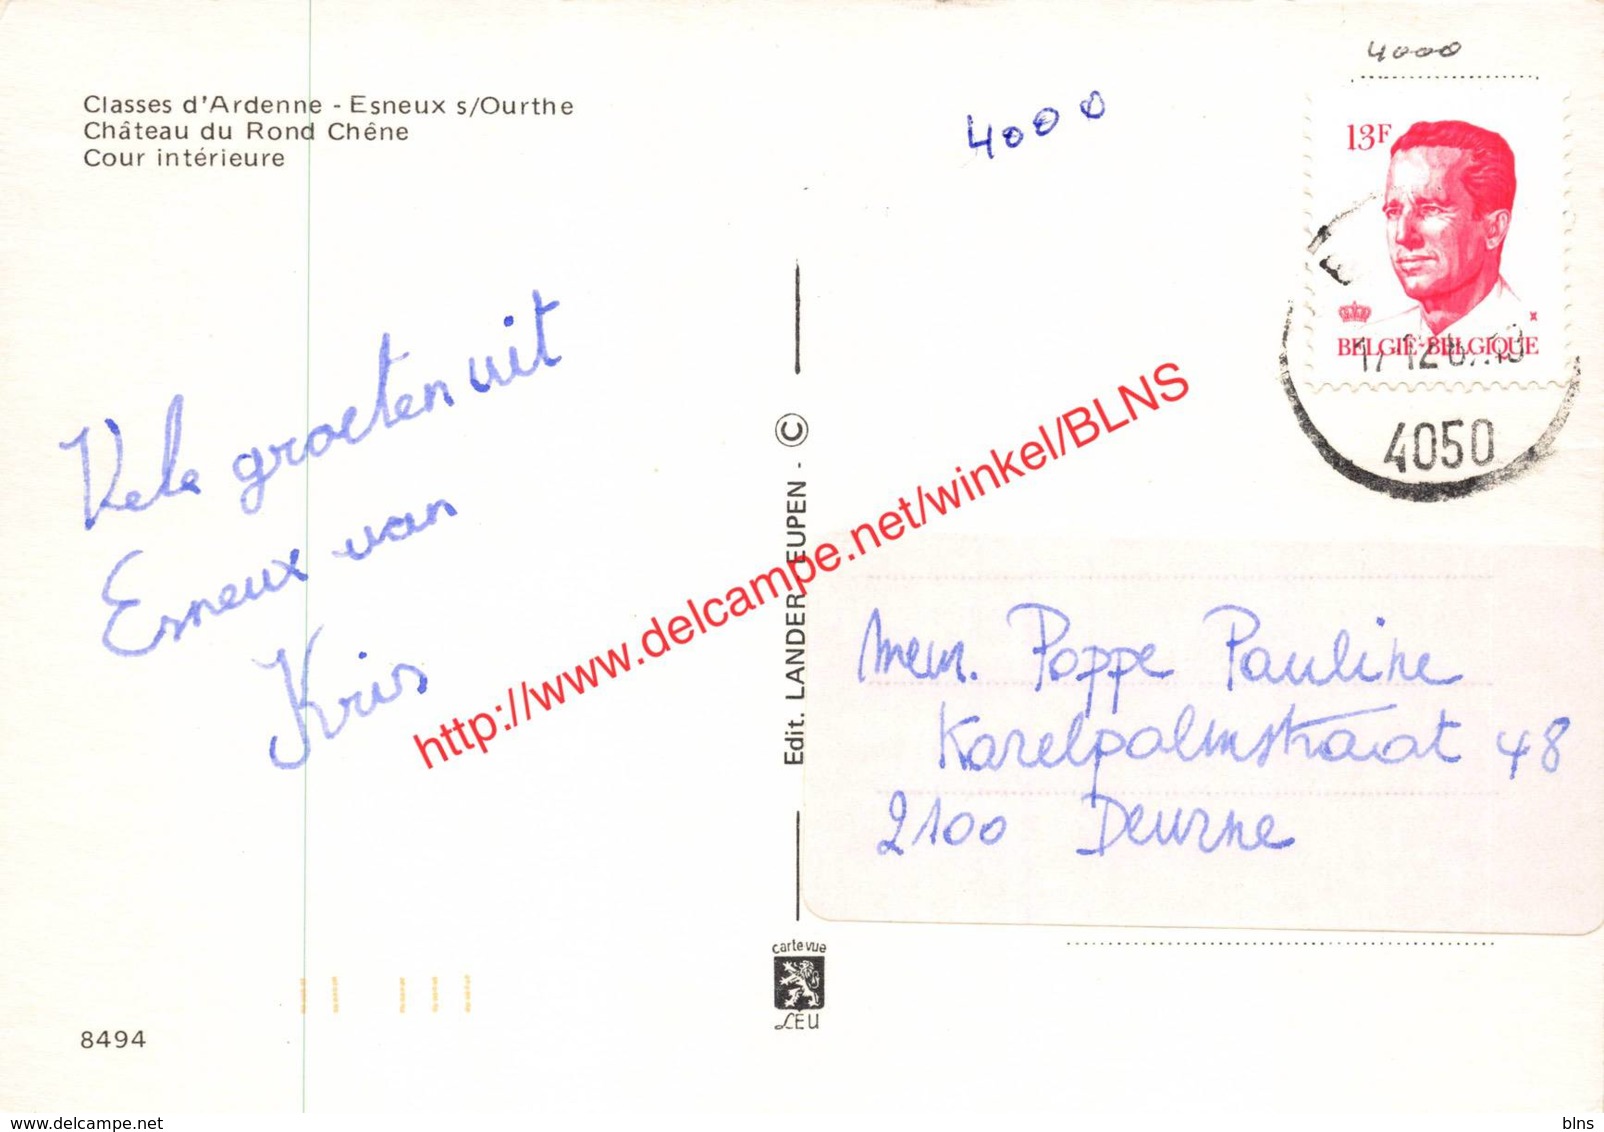 Classes d'Ardenne - Esneux s/Ourthe
Château du Rond Chêne
Cour intérieure
4000
4000
13F
BELGIE-BELGIQUE
4050
Vele groeten uit
Esneux van
Kris
Edit. LANDER-EUPEN - ©
http://www.delcampe.net/winkel/BLNS
Mevr. Poppe Pauline
Karelpalmstraat 48
2100 Deurne
carte vue
LEU
8494
www.delcampe.net
blns